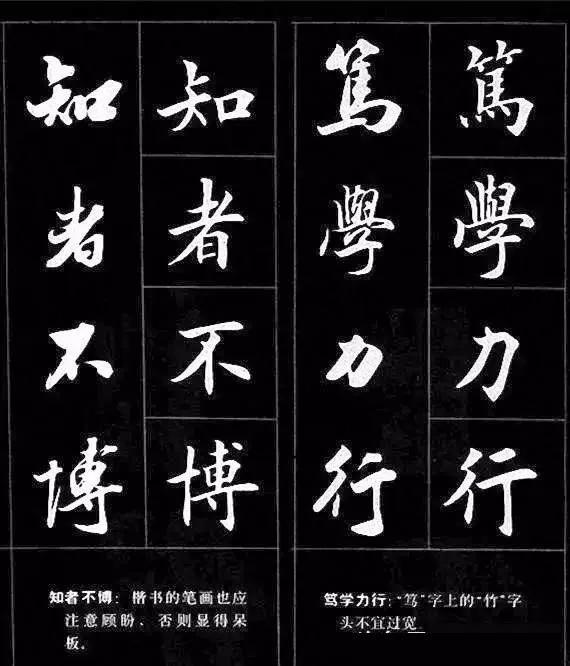 篤學力行
篤學力行
笃学力行:“笃”字上的“竹”字
头不宜过宽。
知者不博
知者不博
知者不博:楷书的笔画也应
注意顾盼、否则显得呆
板。